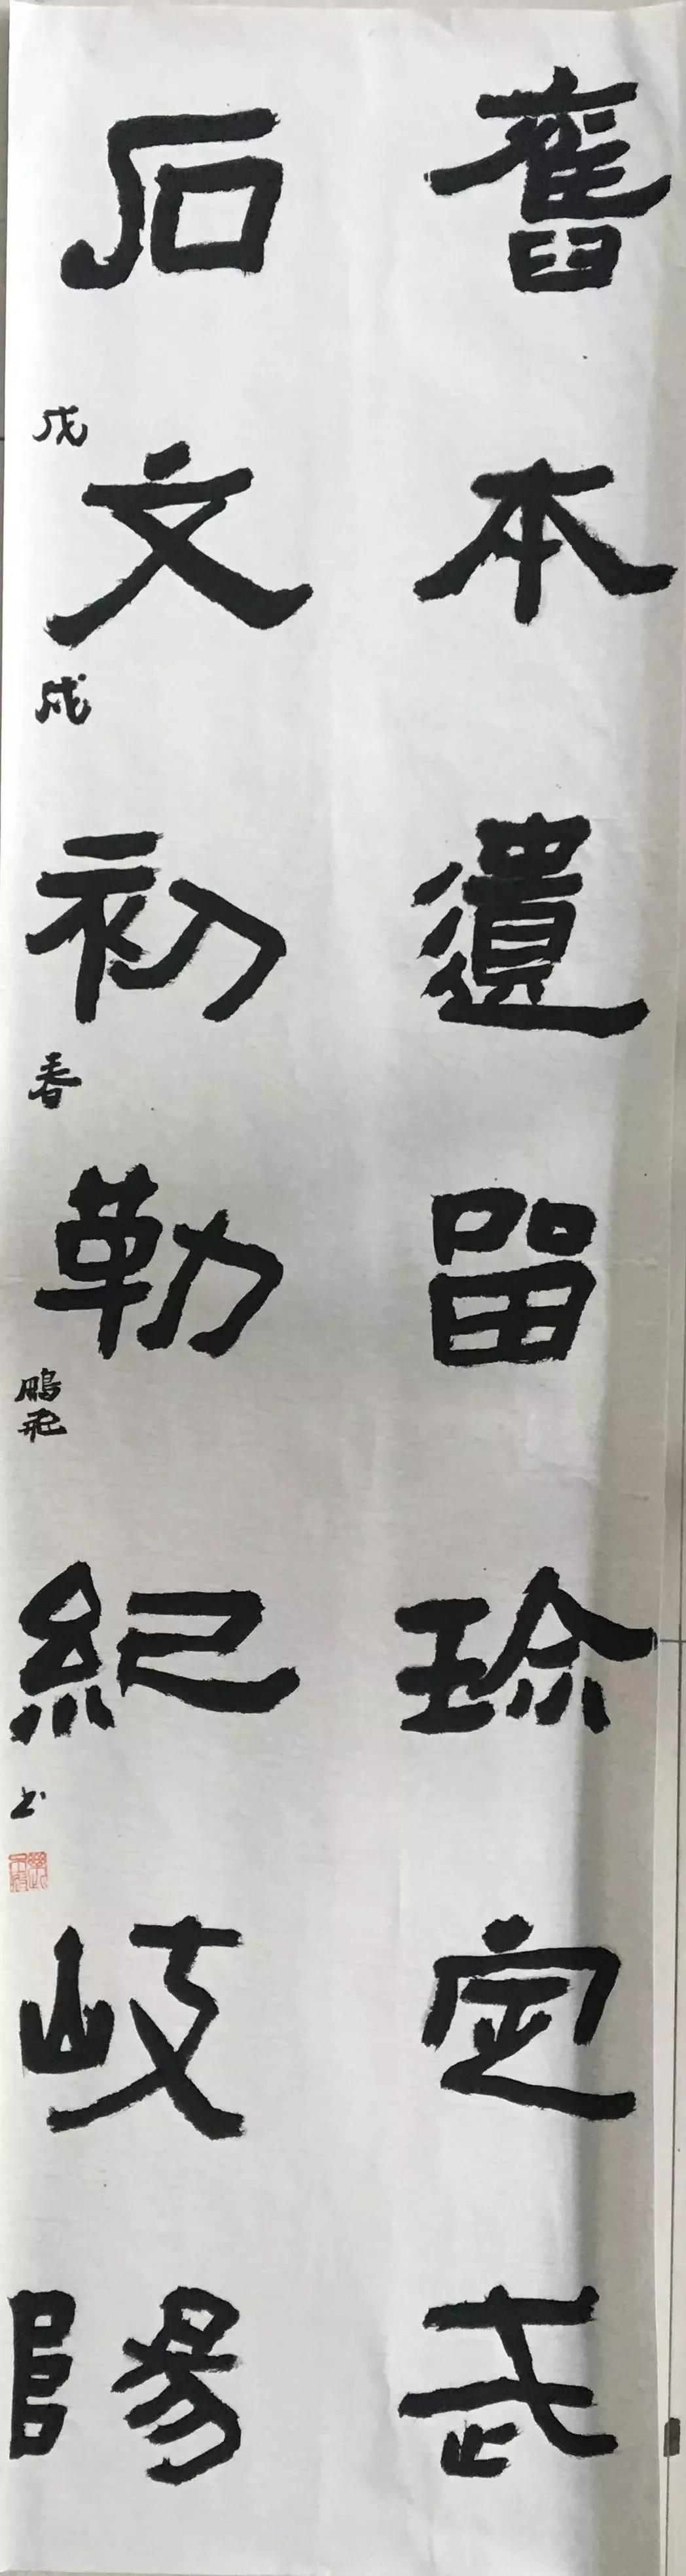 舊本遺留珍定武
石文初勒紀岐陽
戊戌春鵬飛書